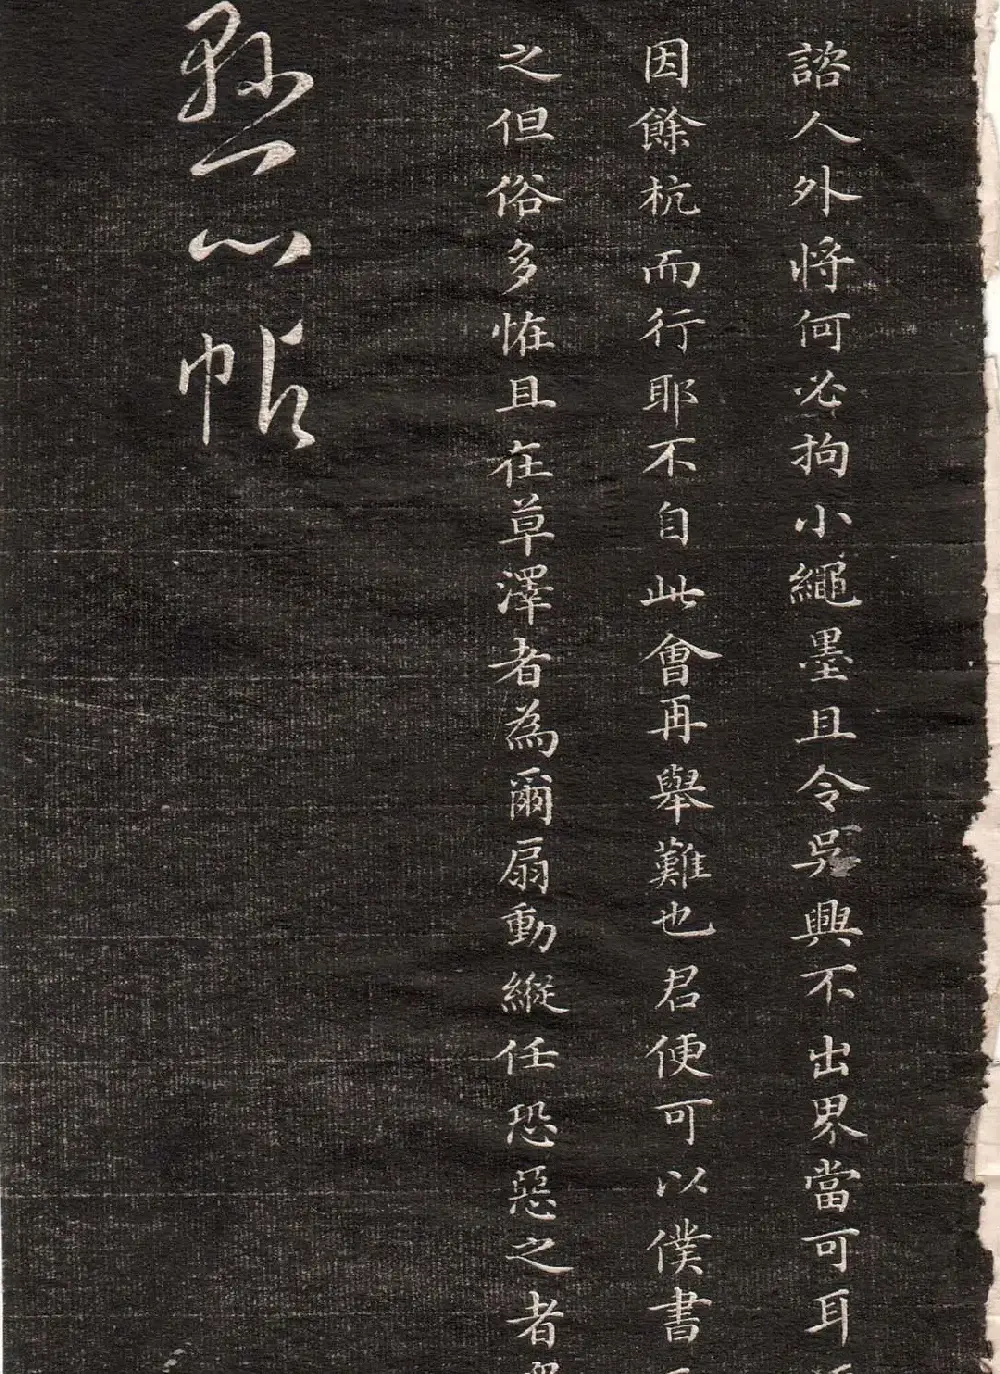 諮人外將何必拘小繩墨且令吳興不出界當可耳
因餘杭而行耶不自此會再舉難也君便可以僕書
之但俗多恠且在草澤者為爾扇動縱任恐惡之者
懸心帖